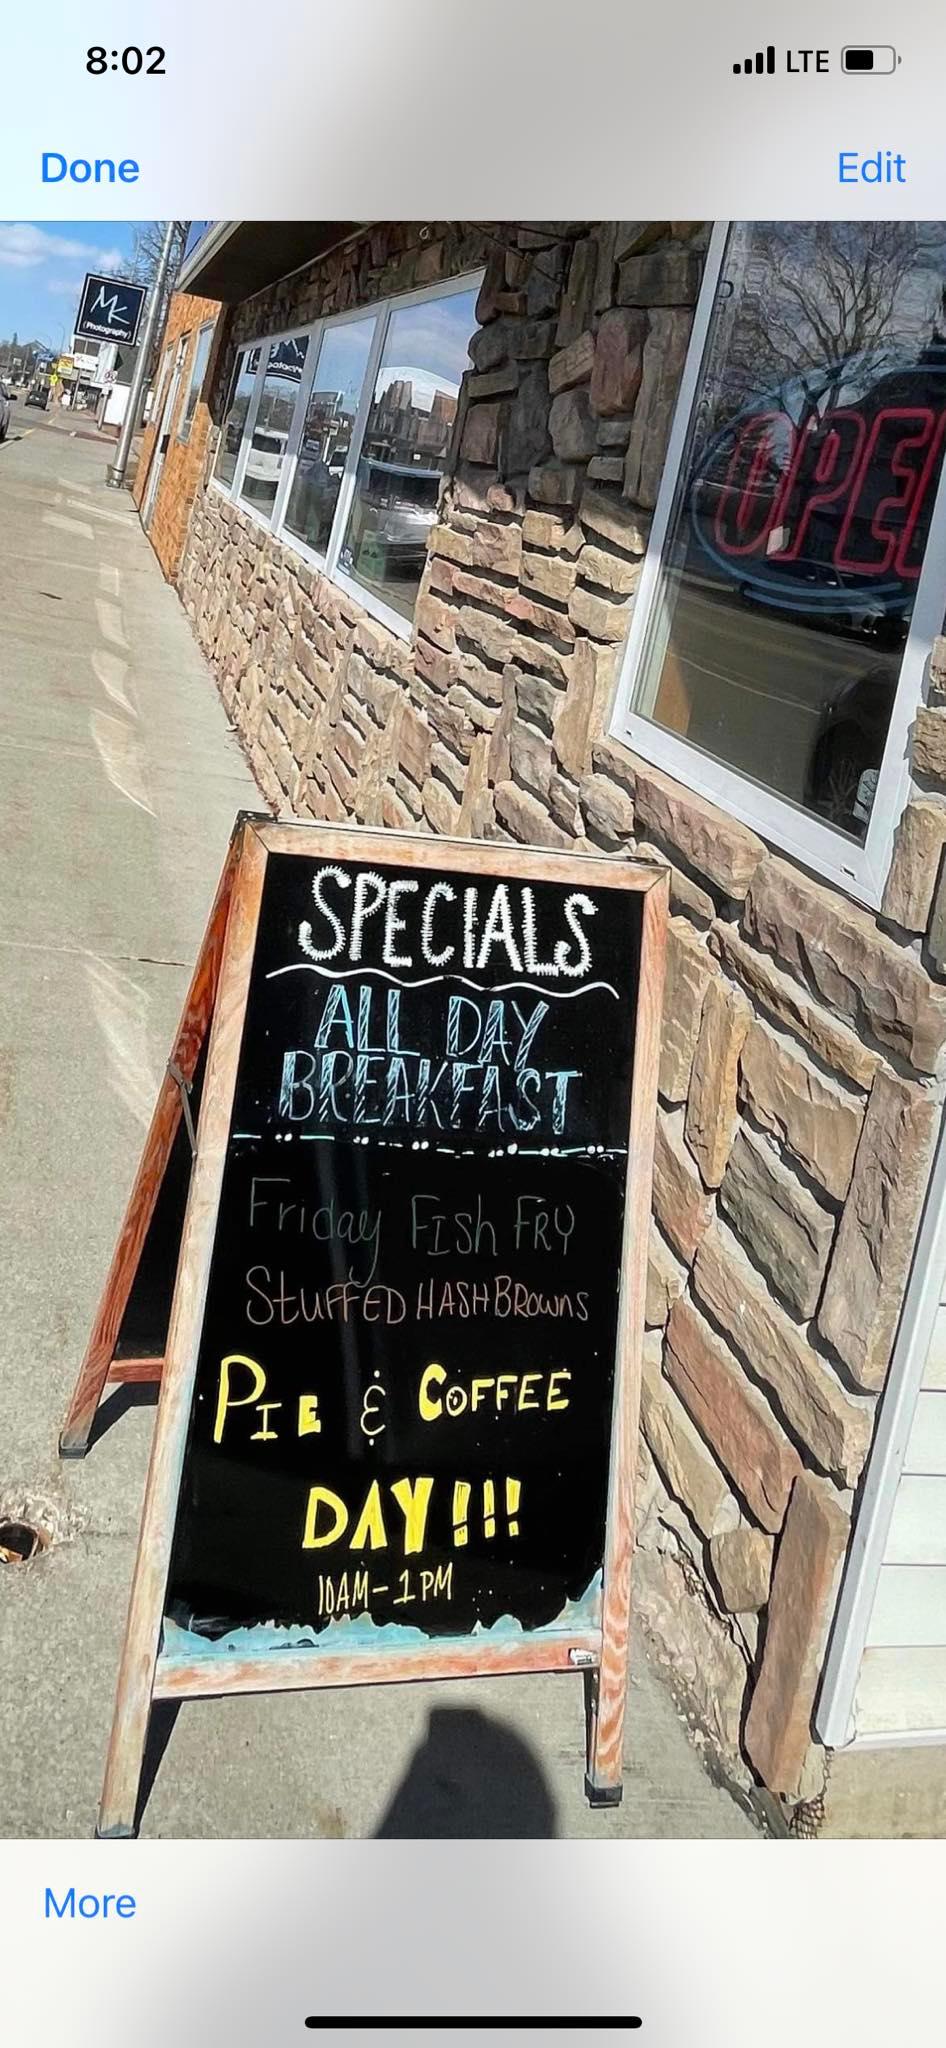 8:02
LTE
Done
Edit
MK
(Photography)
OPE
SPECIALS
ALL DAY
BREAKFAST
Friday FISh FRY
StuFFED HASHBROwnS
PIE & COFFEE
DAY!!!
10AM-1PM
More